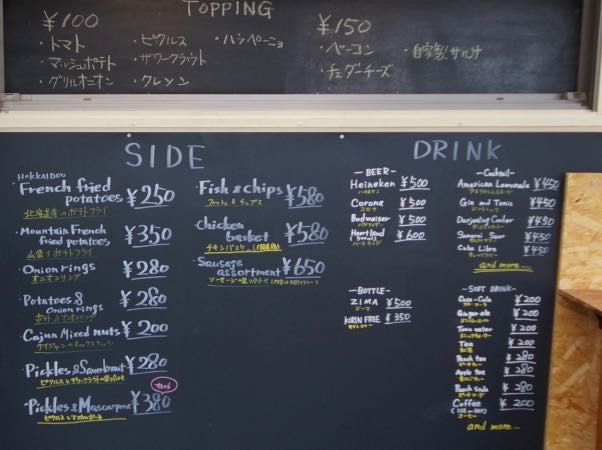 TOPPING
¥100
・トマト
・マッシュポテト
・グリルオニオン
・ピクルス
・ザワークラウト
・クレソン
・ハラペーニョ
¥150
・ベーコン
・チェダーチーズ
・自家製サルサ
SIDE
HOKKAIDOU
・French fried potatoes ¥250
北海道産のポテトフライ
・Mountain French fried potatoes ¥350
山盛りポテトフライ
・Onion rings ¥280
オニオンリング
・Potatoes & Onion rings ¥280
・Cajun Mixed nuts ¥200
ケイジャンのミックスナッツ
・Pickles & Sauerkraut ¥280
ピクルスとザワークラウトの盛り合わせ
・Pickles & Mascarpone ¥380
ピクルスとマスカルポーネ
・Fish & chips ¥580
フィッシュ&チップス
・Chicken basket ¥580
チキンバスケット
・Sausage assortment ¥650
ソーセージの盛り合わせ
DRINK
—BEER—
Heineken ¥500
ハイネケン
Corona ¥500
コロナ
Budweiser ¥500
バドワイザー
Heartland ¥600
ハートランド
—BOTTLE—
ZIMA ¥500
ジーマ
KIRIN FREE ¥350
—Cocktail—
American Lemonade ¥450
アメリカンレモネード
Gin and Tonic ¥450
ジントニック
Darjeeling Cooler ¥450
Samurai Sour ¥450
Cuba Libre ¥450
and more...
—SOFT DRINK—
Coca-Cola ¥200
コカ・コーラ
Ginger ale ¥200
ジンジャーエール
Tonic water ¥200
Tea ¥200
Peach tea ¥280
Apple tea ¥280
Peach soda ¥280
Coffee ¥200
(ICE or HOT)
コーヒー
and more...